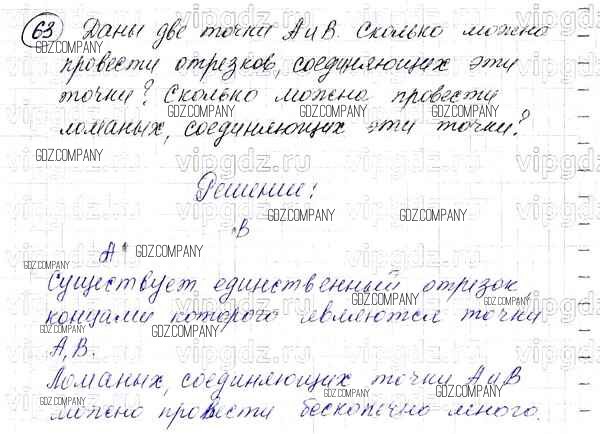 63 Даны две точки А и В. Сколько можно
провести отрезков, соединяющих эти
точки? Сколько можно провести
ломаных, соединяющих эти точки?
Решение:
В
А
Существует единственный отрезок,
концами которого являются точки
А, В.
Ломаных, соединяющих точки А и В
можно провести бесконечно много.